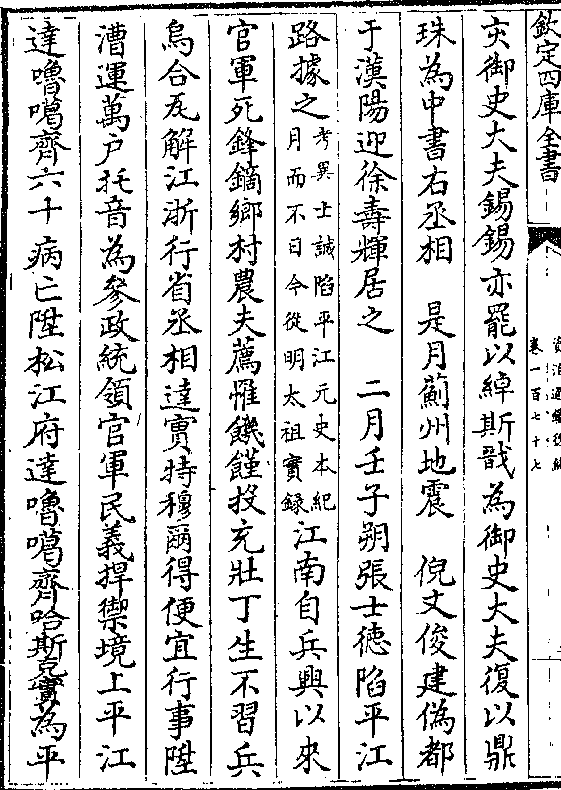 欽定四庫全書
資治通鑑後編
卷一百七十七
災御史大夫錫錫亦罷以綽斯戩為御史大夫復以鼎
珠為中書右丞相　是月薊州地震　倪文俊建偽都
于漢陽迎徐壽輝居之　二月壬子朔張士德陷平江
路據之考異士誠陷平江元史本紀月而不日今從明太祖實錄江南自兵興以來
官軍死鋒鏑鄉村農夫薦罹饑饉投充壯丁生不習兵
烏合瓦解江浙行省丞相達實特穆爾得便宜行事陞
漕運萬户托音為參政統領官軍民義捍禦境上平江
達嚕噶齊六十病亡陞松江府達嚕噶齊哈斯克實為平